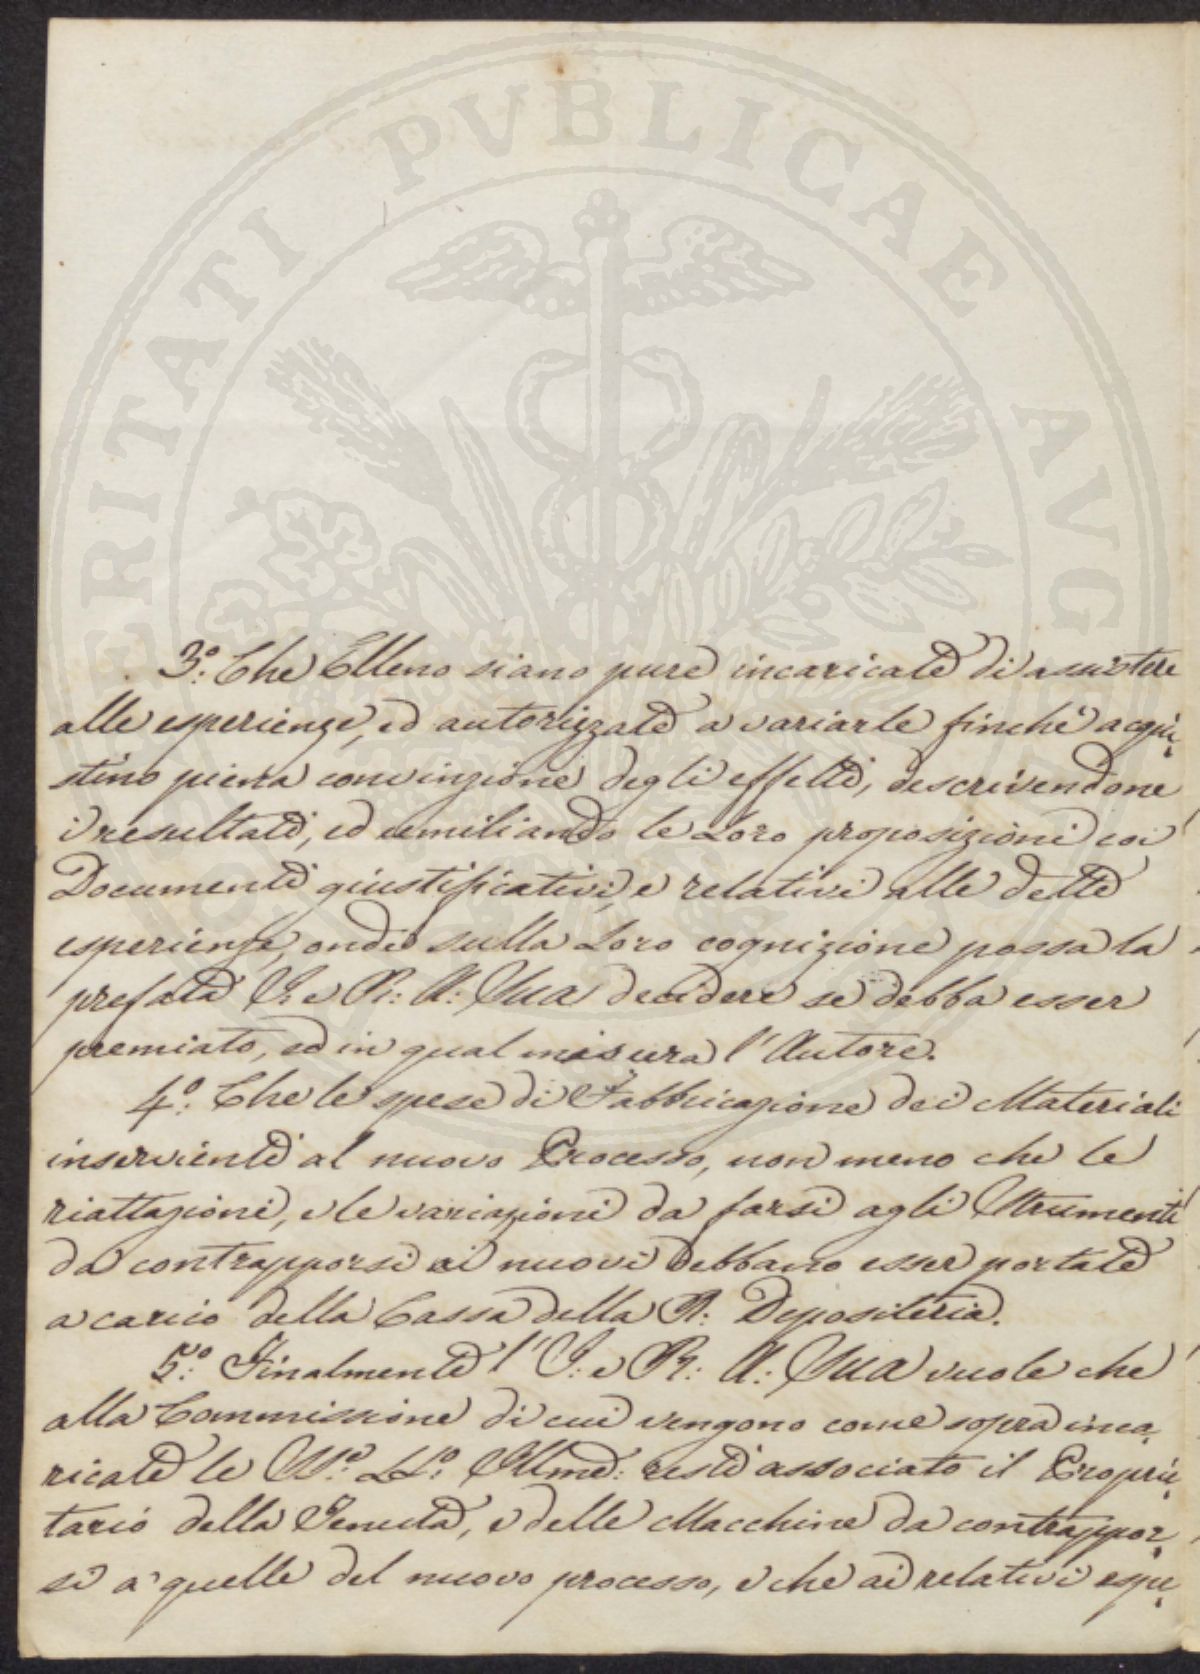 PROSPERITATI PVBLICAE AVGENDAE
3.° Che Elleno siano pure incaricate di assistere
alle esperienze, ed autorizzate a variarle finchè acqui-
stino piena convinzione degli effetti, descrivendone
i resultati, ed umiliando le Loro proposizioni coi
Documenti giustificativi, e relativi alle dette
esperienze, onde sulla Loro cognizione possa la
prefata I. e R: A: Sua decidere se debba esser
premiato, ed in qual misura l'Autore.
4.° Che le spese di Fabbricazione dei Materiali
inservienti al nuovo Processo, non meno che le
riattazioni, e le variazioni da farsi agli Strumenti
da contrapporsi ai nuovi debbano esser portate
a carico della Cassa della R: Depositeria.
5.° Finalmente l'I: e R: A: Sua vuole che
alla Commissione di cui vengono come sopra inca-
ricate le SS.° LL.° Illme: resti associato il Proprie-
tario della Tenuta, e delle Macchine da contrappor-
si a quelle del nuovo processo, e che ai relativi espe-